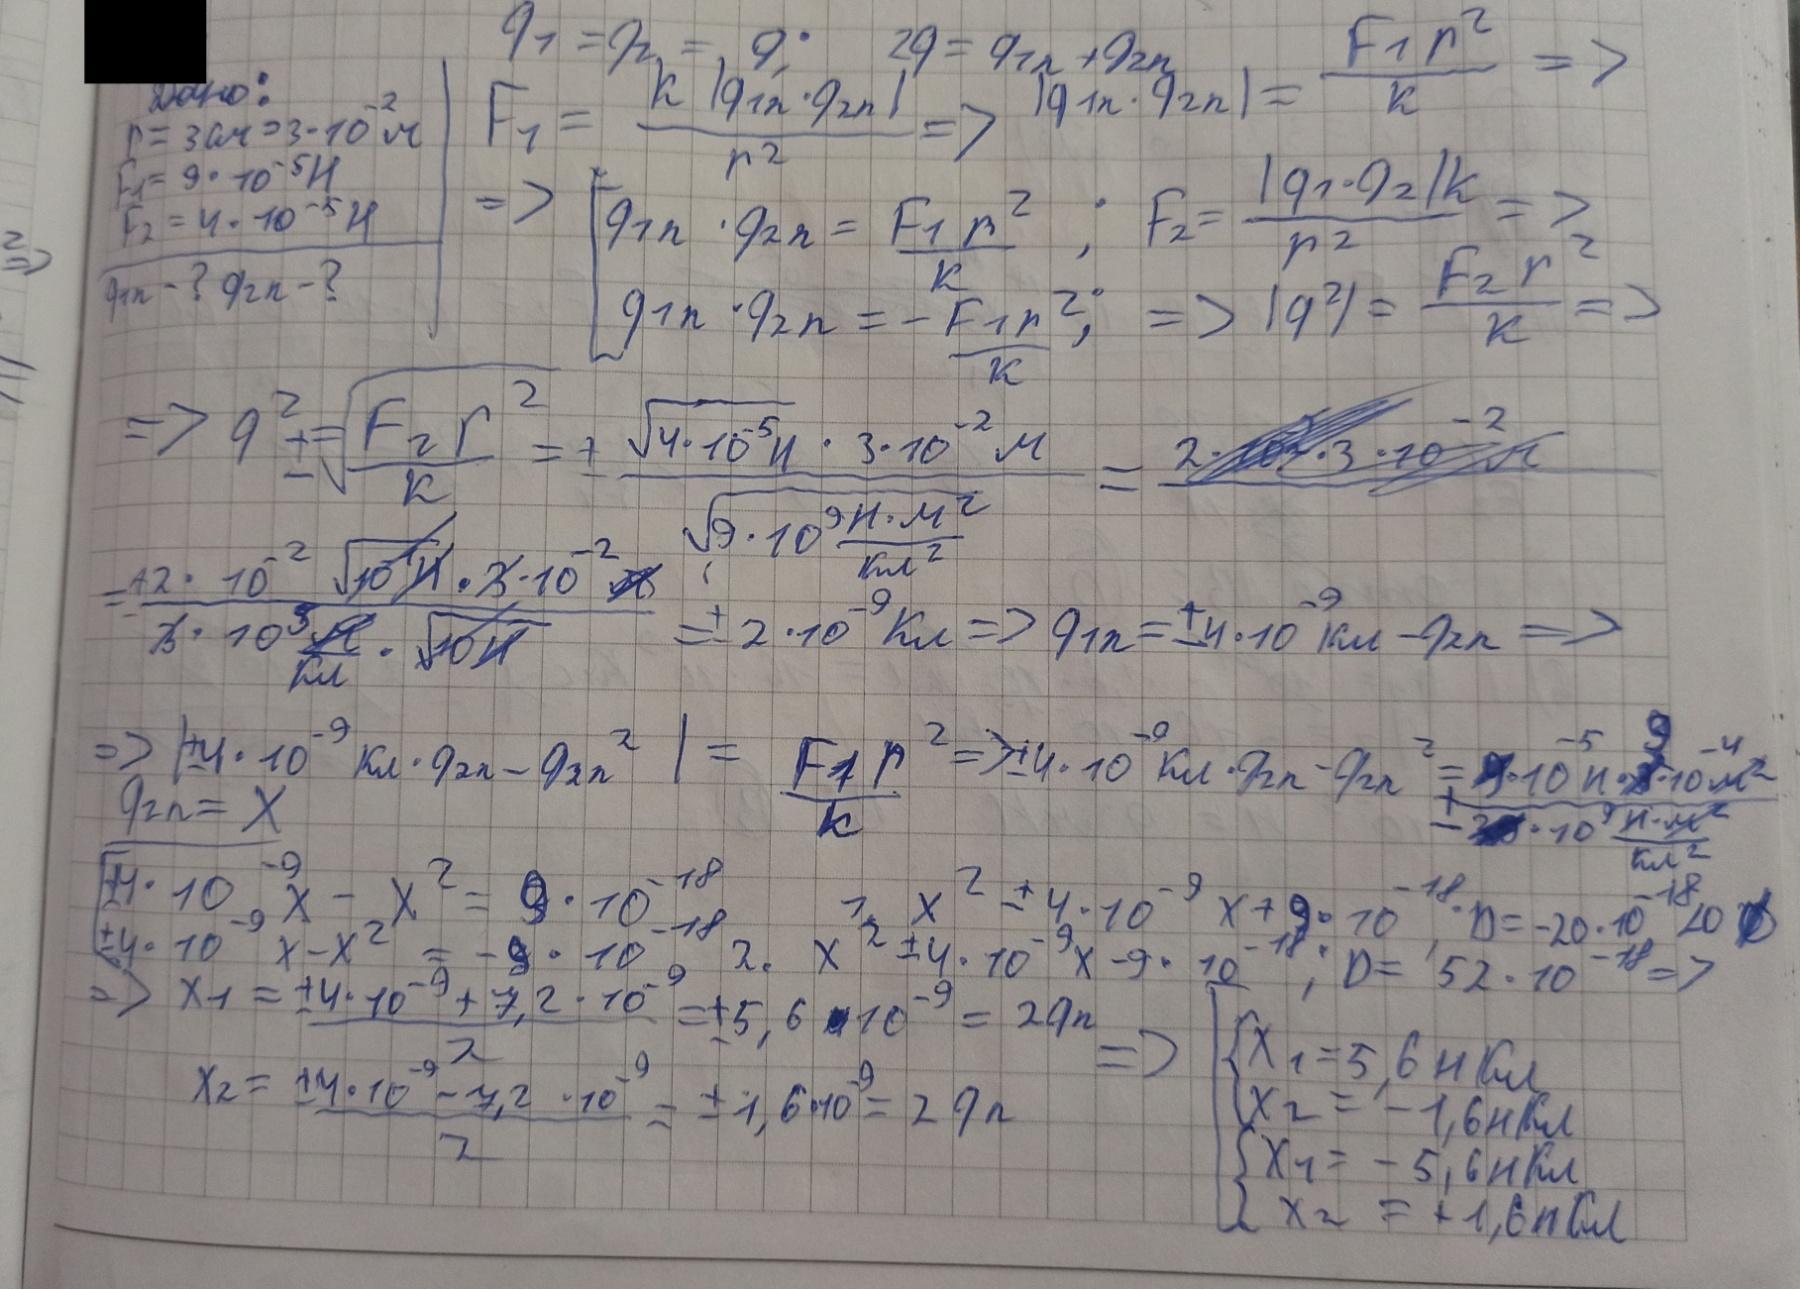 q₁ = q₂ = q; 2q = q₁п + q₂п
Дано:
r = 3см = 3·10⁻² м
F₁ = 9·10⁻⁵ Н
F₂ = 4·10⁻⁵ Н
q₁п - ? q₂п - ?
F₁ = k |q₁п · q₂п| / r² => |q₁п · q₂п| = F₁ r² / k =>
=> [ q₁п · q₂п = F₁ r² / k ; F₂ = |q₁ · q₂| k / r² =>
q₁п · q₂п = - F₁ r² / k ; => |q²| = F₂ r² / k =>
=> q² = ± √(F₂ r² / k) = ± √(4·10⁻⁵ Н) · 3·10⁻² м / √(9·10⁹ Н·м² / Кл²) =
= ±2·10⁻² √(10 Н) · 3·10⁻² м / 3·10³ м/Кл · √(10 Н) = ± 2·10⁻⁹ Кл => q₁п = ±4·10⁻⁹ Кл - q₂п =>
=> |±4·10⁻⁹ Кл · q₂п - q₂п²| = F₁ r² / k => ±4·10⁻⁹ Кл · q₂п - q₂п² = ± 9·10⁻⁵ Н · 9·10⁻⁴ м² / 9·10⁹ Н·м² / Кл²
q₂п = x
[ ±4·10⁻⁹ x - x² = 9·10⁻¹⁸ 1. x² ± 4·10⁻⁹ x + 9·10⁻¹⁸; D = -20·10⁻¹⁸ < 0
±4·10⁻⁹ x - x² = -9·10⁻¹⁸ 2. x² ± 4·10⁻⁹ x - 9·10⁻¹⁸; D = 52·10⁻¹⁸ =>
=> x₁ = ±4·10⁻⁹ + 7,2·10⁻⁹ / 2 = ±5,6·10⁻⁹ = 2qп
x₂ = ±4·10⁻⁹ - 7,2·10⁻⁹ / 2 = ±1,6·10⁻⁹ = 2qп
=> [ { x₁ = 5,6 нКл
x₂ = -1,6 нКл
{ x₁ = -5,6 нКл
x₂ = +1,6 нКл